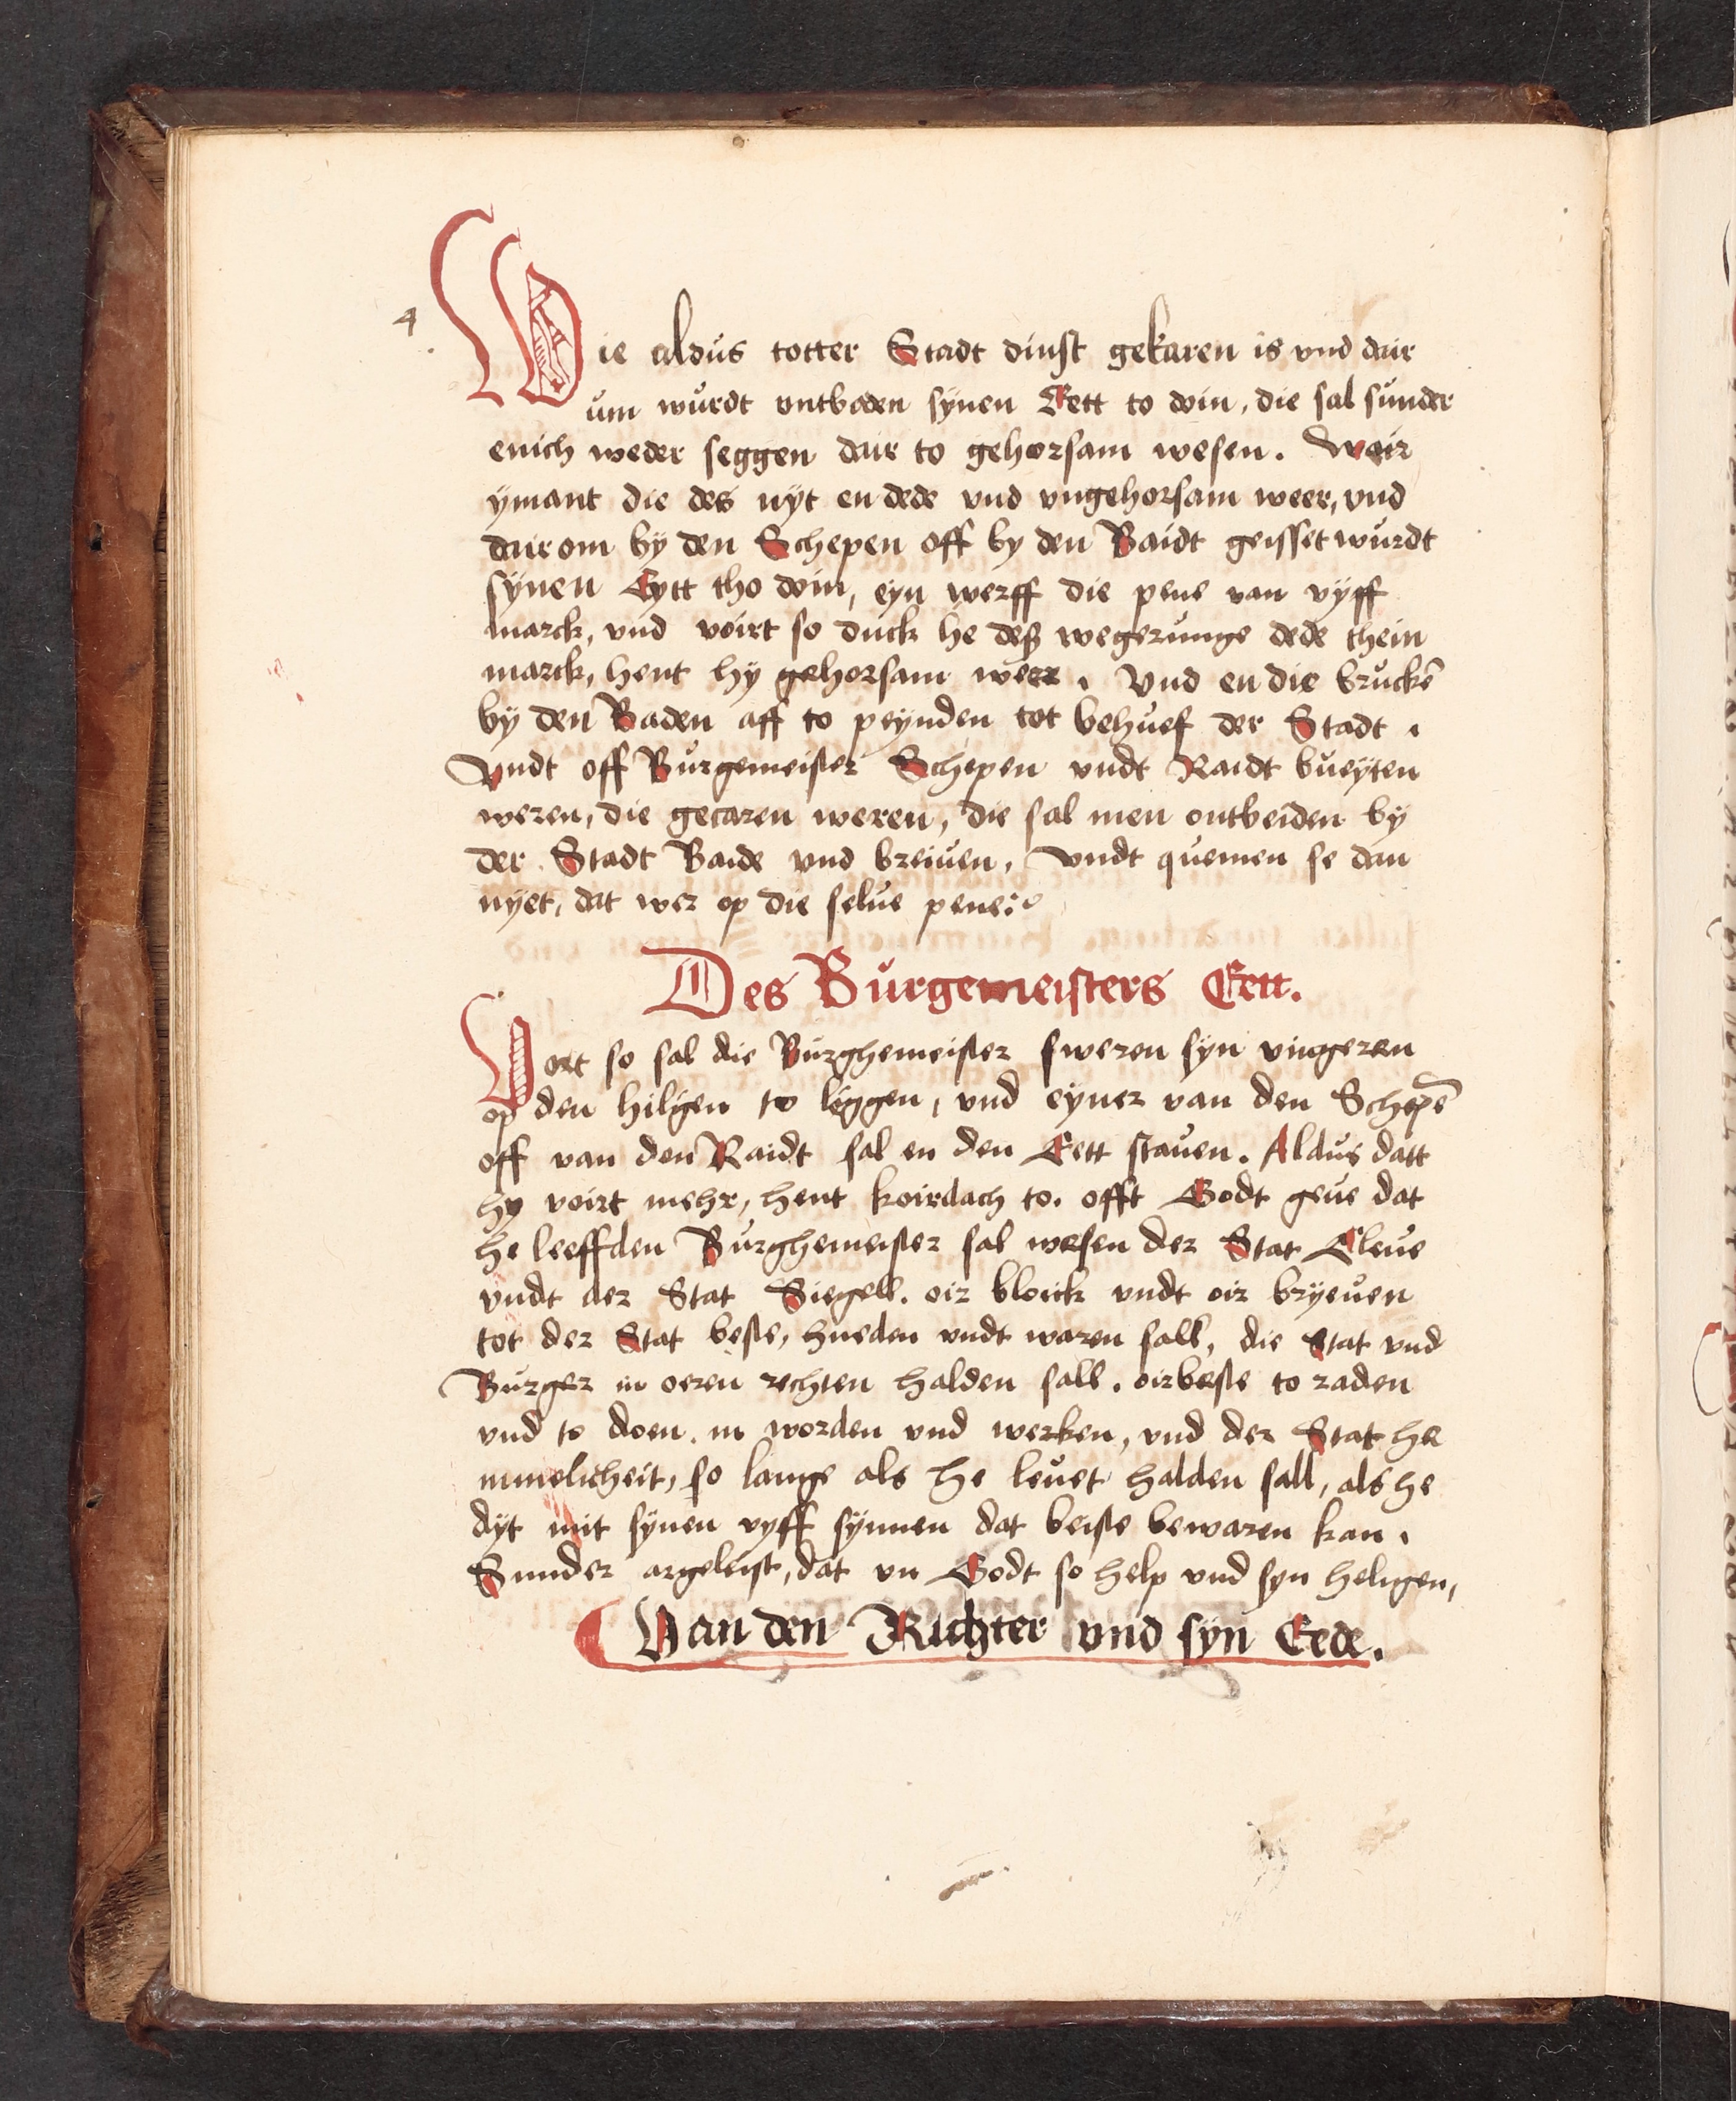 4
Wie aldus totter Stadt dinst gekaren is vnd dair
um wurdt ontboden synen Eett to doin, die sal sunder
enich weder seggen dair to gehorsam wesen. Weir
ymant die des nyt en dede vnd vngehorsam weer, vnd
dairom by den Schepen off by den Raidt geisset wurdt
synen Eytt tho doin, eyn werff die pene van vyff
marck, vnd voirt so duck he deß wegerunge dede thein
marck, hent hy gehorsam weer. Vnd en die brucken̄
by den Baden aff to peynden tot behuef der Stadt.
Vndt off Burgemeister Schepen vndt Raidt bueyten
weren, die gecaren weren, die sal men ontbeiden by
der Stadt Bade vnd breiuen, Vndt quemen se dan
nyet, dat wer op die selue pene:
Des Burgemeisters Eett.
Vort so sal die Burghemeister sweren syn vingeren
op den hilgen to liggen, vnd eyner van den Schepē
off van den Raidt sal en den Eett stauen. Aldus datt
hy voirt mehr, hent koirdach to. offt Godt geue dat
he leeffden Burghemeister sal wesen der Stat Cleue
vndt der Stat Siegell. oir bloick vndt oir bryeuen
tot der Stat beste, hueden vndt waren sall, die Stat vnd
Burger in oeren rechten halden sall. oirbeste to raden
vnd to doen. in worden vnd werken, vnd der Stat he
mmelicheit, so lange als he leuet halden sall, als he
dyt mit synen vyff synnen dat beiste bewaren kan.
Sunder argeleist, dat vn Godt so help vnd syn heligen,
Van den Richter vnd syn Eede.